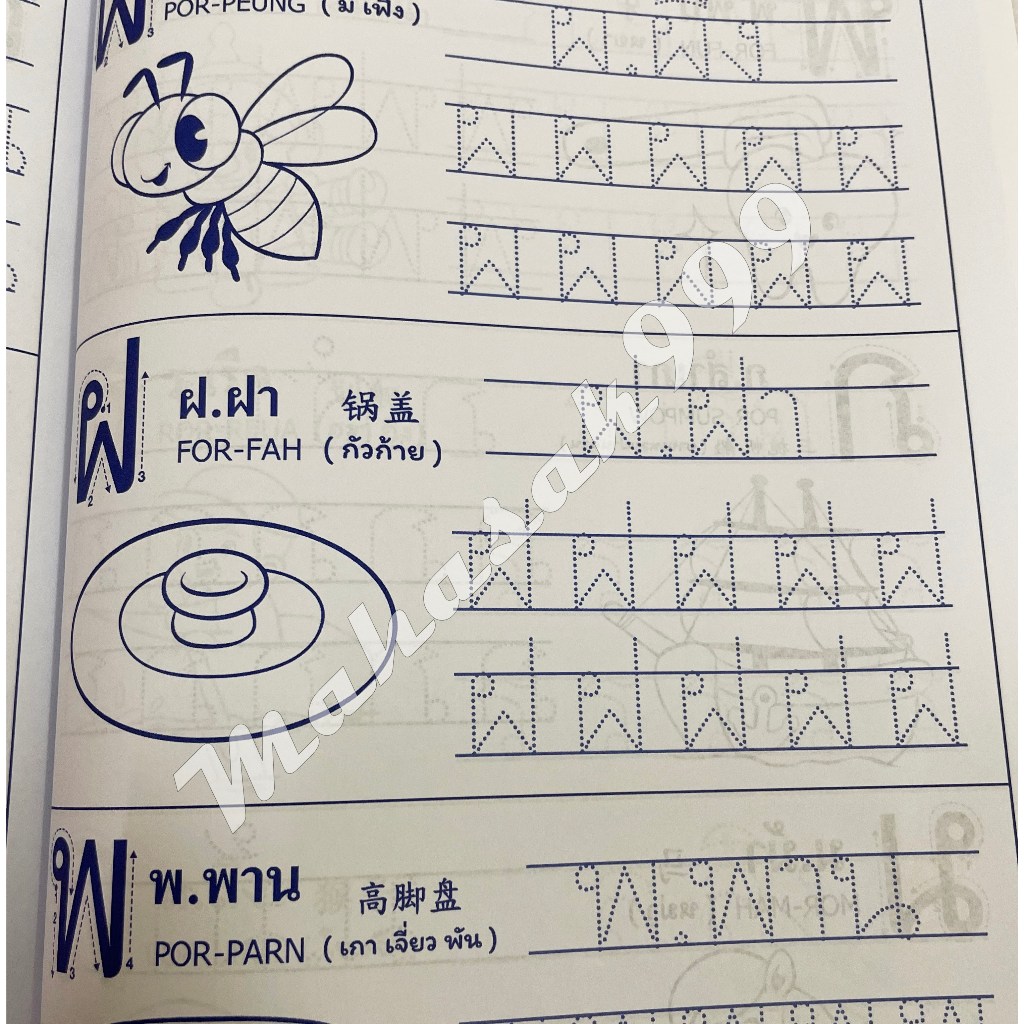 ผ
POR-PEUNG ( มี่ เฟิง )
ผ.ผึ้ง
ผ ผ ผ ผ ผ
ผ ผ ผ ผ ผ
ฝ
ฝ.ฝา 锅盖
FOR-FAH ( กัวก้าย )
ฝ.ฝา
ฝ ฝ ฝ ฝ ฝ
ฝ ฝ ฝ ฝ ฝ
พ
พ.พาน 高脚盘
POR-PARN ( เกา เจี่ยว พัน )
พ.พาน
Mahasak999